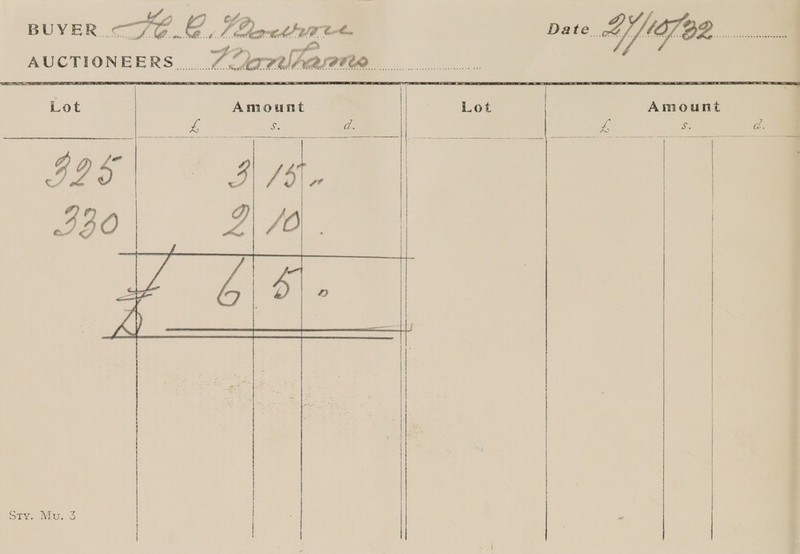 BUYER H. C. Bourne Date 27/10/32
AUCTIONEERS Bonhams
Lot Amount Lot Amount
£ s. d. £ s. d.
325 3 15 "
330 2 10 .
£ 6 5 "
STY. MU. 3